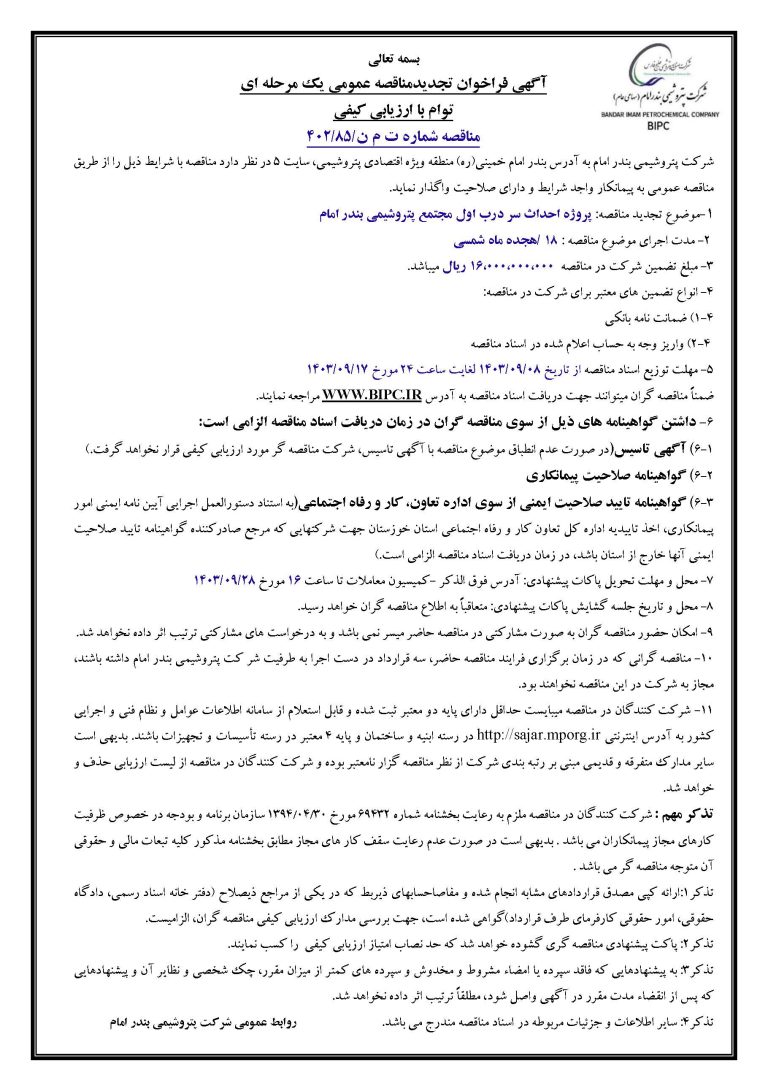 بسمه تعالی
آگهی فراخوان تجدیدمناقصه عمومی یک مرحله ای
توام با ارزیابی کیفی
مناقصه شماره ت م ن/۴۰۲/۸۵
شرکت پتروشیمی بندرامام (سهامی عام)
BANDAR IMAM PETROCHEMICAL COMPANY
BIPC
شرکت پتروشیمی بندر امام به آدرس بندر امام خمینی(ره) منطقه ویژه اقتصادی پتروشیمی، سایت ۵ در نظر دارد مناقصه با شرایط ذیل را از طریق
مناقصه عمومی به پیمانکار واجد شرایط و دارای صلاحیت واگذار نماید.
۱-موضوع تجدید مناقصه: پروژه احداث سر درب اول مجتمع پتروشیمی بندر امام
۲- مدت اجرای موضوع مناقصه : ۱۸ /هجده ماه شمسی
۳- مبلغ تضمین شرکت در مناقصه ۱۶،۰۰۰،۰۰۰،۰۰۰ ریال میباشد.
۴- انواع تضمین های معتبر برای شرکت در مناقصه:
۴-۱) ضمانت نامه بانکی
۴-۲) واریز وجه به حساب اعلام شده در اسناد مناقصه
۵- مهلت توزیع اسناد مناقصه از تاریخ ۱۴۰۳/۰۹/۰۸ لغایت ساعت ۲۴ مورخ ۱۴۰۳/۰۹/۱۷
ضمناً مناقصه گران میتوانند جهت دریافت اسناد مناقصه به آدرس WWW.BIPC.IR مراجعه نمایند.
۶- داشتن گواهینامه های ذیل از سوی مناقصه گران در زمان دریافت اسناد مناقصه الزامی است:
۶-۱) آگهی تاسیس(در صورت عدم انطباق موضوع مناقصه با آگهی تاسیس، شرکت مناقصه گر مورد ارزیابی کیفی قرار نخواهد گرفت.)
۶-۲) گواهینامه صلاحیت پیمانکاری
۶-۳) گواهینامه تایید صلاحیت ایمنی از سوی اداره تعاون، کار و رفاه اجتماعی(به استناد دستورالعمل اجرایی آیین نامه ایمنی امور
پیمانکاری، اخذ تاییدیه اداره کل تعاون کار و رفاه اجتماعی استان خوزستان جهت شرکتهایی که مرجع صادرکننده گواهینامه تایید صلاحیت
ایمنی آنها خارج از استان باشد، در زمان دریافت اسناد مناقصه الزامی است.)
۷- محل و مهلت تحویل پاکات پیشنهادی: آدرس فوق الذکر -کمیسیون معاملات تا ساعت ۱۶ مورخ ۱۴۰۳/۰۹/۲۸
۸- محل و تاریخ جلسه گشایش پاکات پیشنهادی: متعاقباً به اطلاع مناقصه گران خواهد رسید.
۹- امکان حضور مناقصه گران به صورت مشارکتی در مناقصه حاضر میسر نمی باشد و به درخواست های مشارکتی ترتیب اثر داده نخواهد شد.
۱۰- مناقصه گرانی که در زمان برگزاری فرایند مناقصه حاضر، سه قرارداد در دست اجرا به ظرفیت شر کت پتروشیمی بندر امام داشته باشند،
مجاز به شرکت در این مناقصه نخواهند بود.
۱۱- شرکت کنندگان در مناقصه میبایست حداقل دارای پایه دو معتبر ثبت شده و قابل استعلام از سامانه اطلاعات عوامل و نظام فنی و اجرایی
کشور به آدرس اینترنتی http://sajar.mporg.ir در رسته ابنیه و ساختمان و پایه ۴ معتبر در رسته تأسیسات و تجهیزات باشند. بدیهی است
سایر مدارک متفرقه و قدیمی مبنی بر رتبه بندی شرکت از نظر مناقصه گزار نامعتبر بوده و شرکت کنندگان در مناقصه از لیست ارزیابی حذف و
خواهد شد.
تذکر مهم : شرکت کنندگان در مناقصه ملزم به رعایت بخشنامه شماره ۶۹۴۳۲ مورخ ۱۳۹۴/۰۴/۳۰ سازمان برنامه و بودجه در خصوص ظرفیت
کارهای مجاز پیمانکاران می باشد . بدیهی است در صورت عدم رعایت سقف کار های مجاز مطابق بخشنامه مذکور کلیه تبعات مالی و حقوقی
آن متوجه مناقصه گر می باشد .
تذکر۱:ارائه کپی مصدق قراردادهای مشابه انجام شده و مفاصاحسابهای ذیربط که در یکی از مراجع ذیصلاح (دفتر خانه اسناد رسمی، دادگاه
حقوقی، امور حقوقی کارفرمای طرف قرارداد)گواهی شده است، جهت بررسی مدارک ارزیابی کیفی مناقصه گران، الزامیست.
تذکر۲: پاکت پیشنهادی مناقصه گری گشوده خواهد شد که حد نصاب امتیاز ارزیابی کیفی را کسب نمایند.
تذکر۳: به پیشنهادهایی که فاقد سپرده یا امضاء مشروط و مخدوش و سپرده های کمتر از میزان مقرر، چک شخصی و نظایر آن و پیشنهادهایی
که پس از انقضاء مدت مقرر در آگهی واصل شود، مطلقاً ترتیب اثر داده نخواهد شد.
تذکر۴: سایر اطلاعات و جزئیات مربوطه در اسناد مناقصه مندرج می باشد. روابط عمومی شرکت پتروشیمی بندر امام